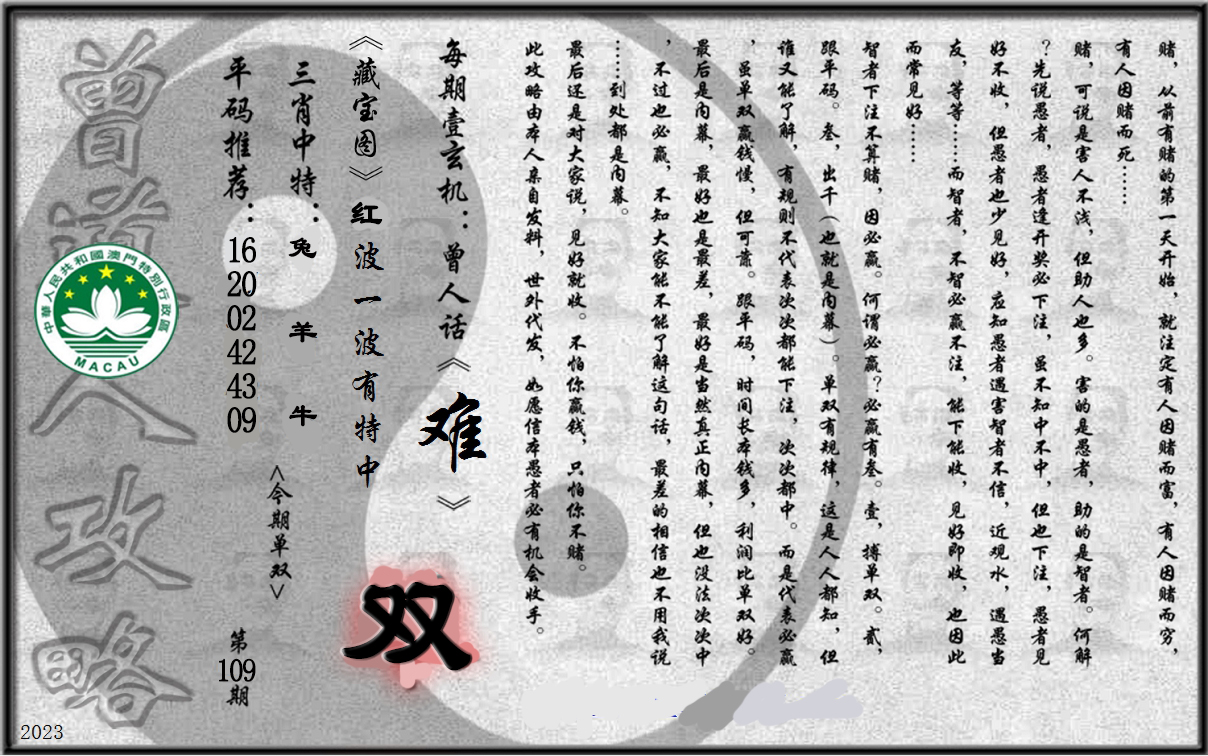 赌，从前有赌的第一天开始，就注定有人因赌而富，有人因赌而穷，
有人因赌而死……
赌，可说是害人不浅，但助人也多。害的是愚者，助的是智者。何解
？先说愚者，愚者逢开奖必下注，虽不知中不中，但也下注，愚者见
好不收，但愚者也少见好，应知愚者遇害智者不信，近观水，遇愚当
友，等等……而智者，不智必赢不注，能下能收，见好即收，也因此
而常见好……
智者下注不算赌，因必赢。何谓必赢？必赢有叁。壹，搏单双。贰，
跟平码。叁，出千（也就是内幕）。单双有规律，这是人人都知，但
谁又能了解，有规则不代表次次都能下注，次次都中。而是代表必赢
，虽单双赢钱慢，但可靠。跟平码，时间长本钱多，利润比单双好。
最后是内幕，最好也是最差，最好是当然真正内幕，但也没法次次中
，不过也必赢，不知大家能不能了解这句话，最差的相信也不用我说
……到处都是内幕。
最后还是对大家说，见好就收。不怕你赢钱，只怕你不赌。
此攻略由本人亲自发料，世外代发，如愿信本愚者必有机会收手。
每期壹玄机：曾人话《难》
《藏宝图》红波一波有特中
双
三肖中特：兔 羊 牛
<今期单双>
平码推荐：16 20 02 42 43 09
第109期
曾道人攻略
中華人民共和國澳門特別行政區
MACAU
2023